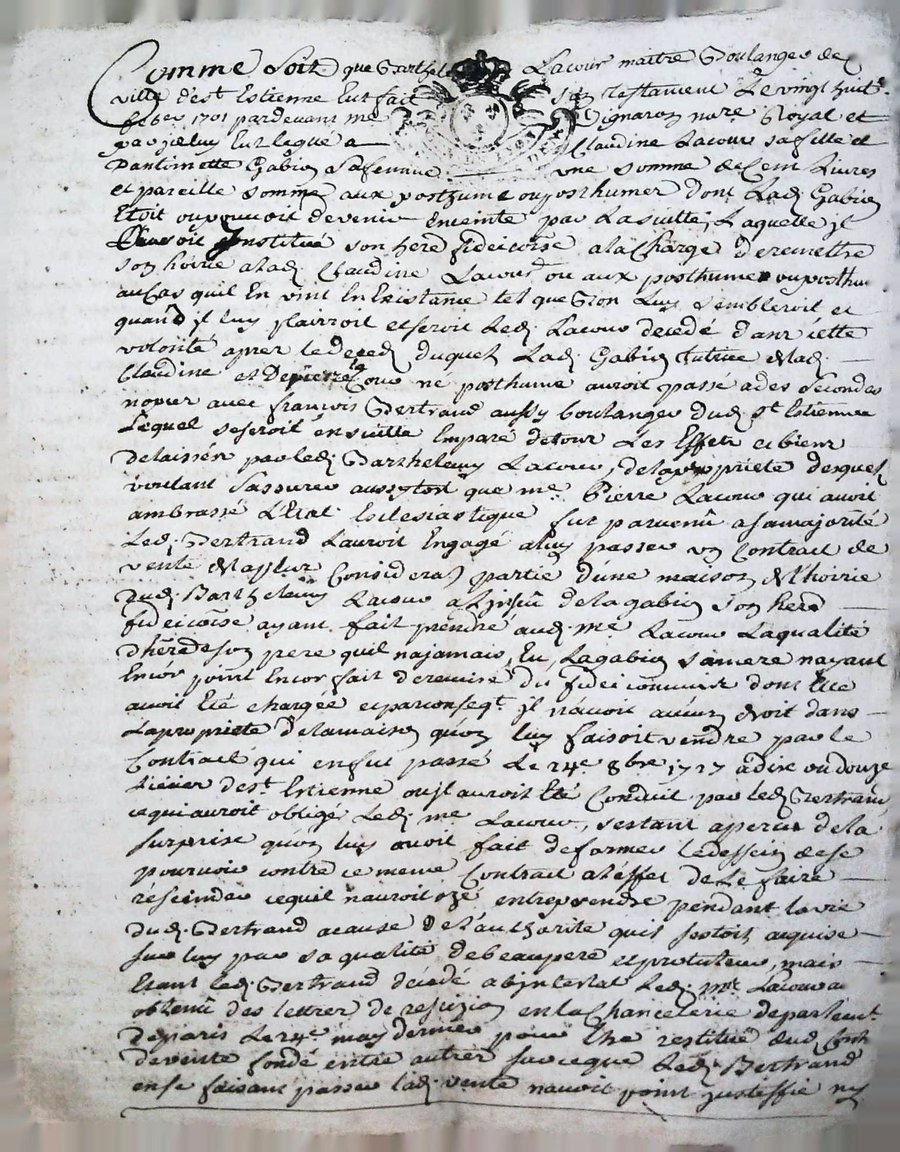 Comme soit que Barthele Lacour maitre Boulanger de
ville de st Estienne Eut fait son Testament Le vingt huit
feber 1701 pardevant me Vignaron nore Royal et
par jceluy Eut legué a Claudine Lacour sa fille et
Dantoinette Gabien sa femme une somme de Cent Livres
et pareille somme aux posthume ou posthumes dont Lad. Gabien
Etoit ou pouvoit devenir enceinte par La suitte, Laquelle jl
auroit Institué son here fideicoise a la Charge de remettre
son hoirie a lad. Claudine Lacour ou aux posthume ou posthu
au Cas quil En vint En Existance tel que Bon Luy sembleroit et
quand jl luy plairroit et seroit Led. Lacour decedé dans cette
volonté apres le deced duquel Lad. Gabien tutrice de lad.
Claudine et de pierre la Cour né posthume auroit passé a des secondes
nopces avec françois Bertrand aussy boulanger dud. st Estienne
Lequel se seroit ensuitte Emparé de tous Les Effets et biens
delaissés par led. Barthelemy Lacour, de la propriete desquels
voulant sassurer aussytost que me. Pierre Lacour qui avoit
ambrassé L'Etat Eclesiastique fut parvenû a sa majorité
Led. Bertrand Lauroit Engagé a luy passer un Contract de
vente de la plus Considerable partie d'une maison de l'hoirie
dud. Barthelemy Lacour a l'insû de la gabien son here
fideicoise ayant fait prendre aud. me Lacour La qualité
d'here de son pere quil na jamais Eu, La gabien sa mere nayant
Encor point Encor fait de remise du fideicommis dont Elle
avoit Eté chargée et par conseqt. jl navoit aucun droit dans
La propriete de la maison qu'on luy faisoit vendre par le
Contract qui en fut passé Le 24e 8bre 1727 a dix ou douze
Lieües de st Estienne ou jl auroit Eté Conduit par led. Bertrand
ce qui auroit obligé Led. me Lacour, sestant aperçu de la
surprise qu'on luy avoit fait de former le dessein de se
pourvoir contre ce meme Contract a l'effet de Le faire
rescinder ce quil nauroit ozé entreprendre pendant la vie
dud. Bertrand a cause de l'authorité quil sestoit acquise
sur luy par sa qualité de beaupere et protuteur, mais
Etant led. Bertrand décédé abjntestat Led. me Lacour a
obtenû des lettres de rescizion en la Chancelerie du parlemt.
de paris Le 24e may dernier pour Etre restitué dud. Cont
de vente fondé entre autres sur ce que Led. Bertrand
en se faisant passer lad. vente navoit point justiffié ny